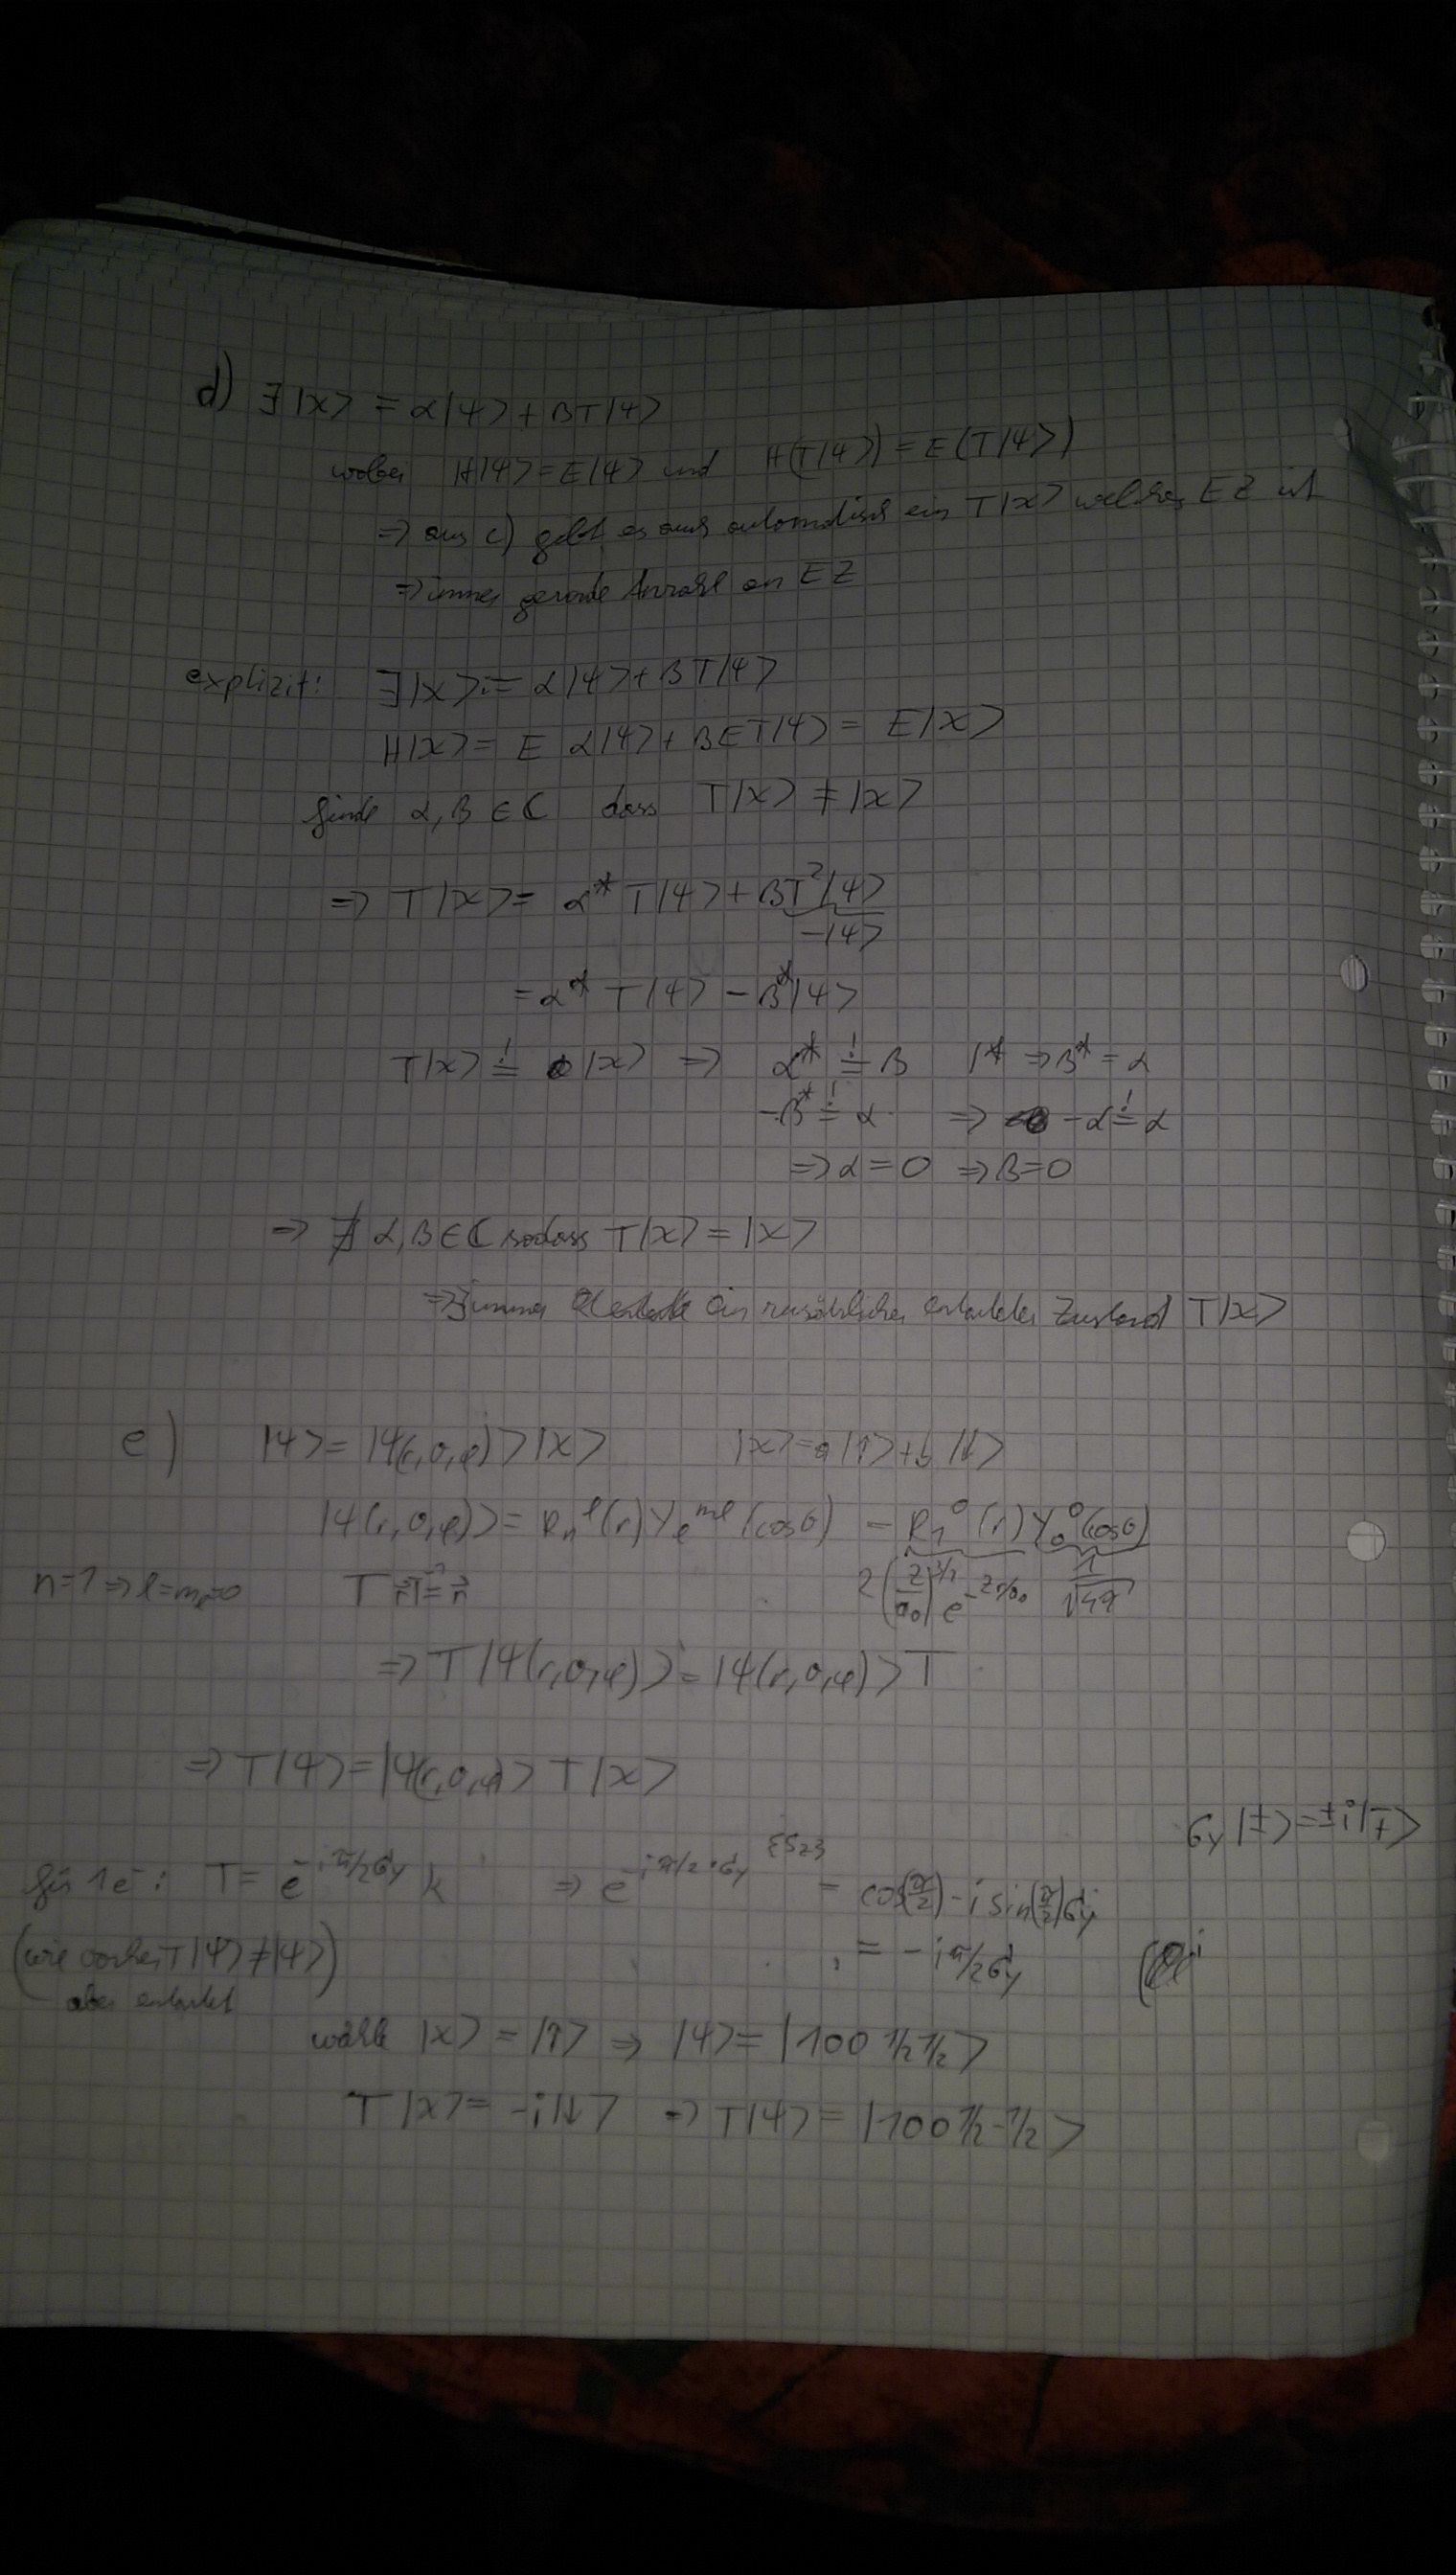 d) ∃|χ> = α|ψ> + βT|ψ>
wobei H|ψ> = E|ψ> und H(T|ψ>) = E(T|ψ>)
=> aus c) gibt es auch automatisch ein T|χ> welches EZ ist
=> immer gerade Anzahl an EZ
explizit: ∃|χ> := α|ψ> + βT|ψ>
H|χ> = E α|ψ> + βET|ψ> = E|χ>
finde α,β ∈ ℂ dass T|χ> ≠ |χ>
=> T|χ> = α* T|ψ> + βT²|ψ>
-|ψ>
= α* T|ψ> - β*|ψ>
T|χ> =! |χ> => α* =! β |* => β* = α
-β* =! α => -α =! α
=> α = 0 => β = 0
=> ∄ α,β ∈ ℂ sodass T|χ> = |χ>
=> ∃ immer ein zusätzlicher entarteter Zustand T|χ>
e) |ψ> = |ψ(r,θ,φ)>|χ> |χ> = a|↑> + b|↓>
|ψ(r,θ,φ)> = R_n^l(r) Y_l^{ml}(cosθ) = R_1^0(r) Y_0^0(cosθ)
n=1 => l=m_l=0 T r⃗ T^{-1} = r⃗ 2(Z/a_0)^{3/2} e^{-Zr/a_0} 1/√4π
=> T|ψ(r,θ,φ)> = |ψ(r,θ,φ)> T
=> T|ψ> = |ψ(r,θ,φ)> T|χ>
σ_y|±> = ±i|∓>
für 1e⁻: T = e^{-iπ/2 σ_y} k => e^{-iπ/2·σ_y} = cos(π/2) - i sin(π/2)σ_y
(wie vorher T|ψ> ≠ |ψ> = -iπ/2 σ_y
aber entartet
wähle |χ> = |↑> => |ψ> = |100 1/2 1/2>
T|χ> = -i|↓> => T|ψ> = |100 1/2 -1/2>